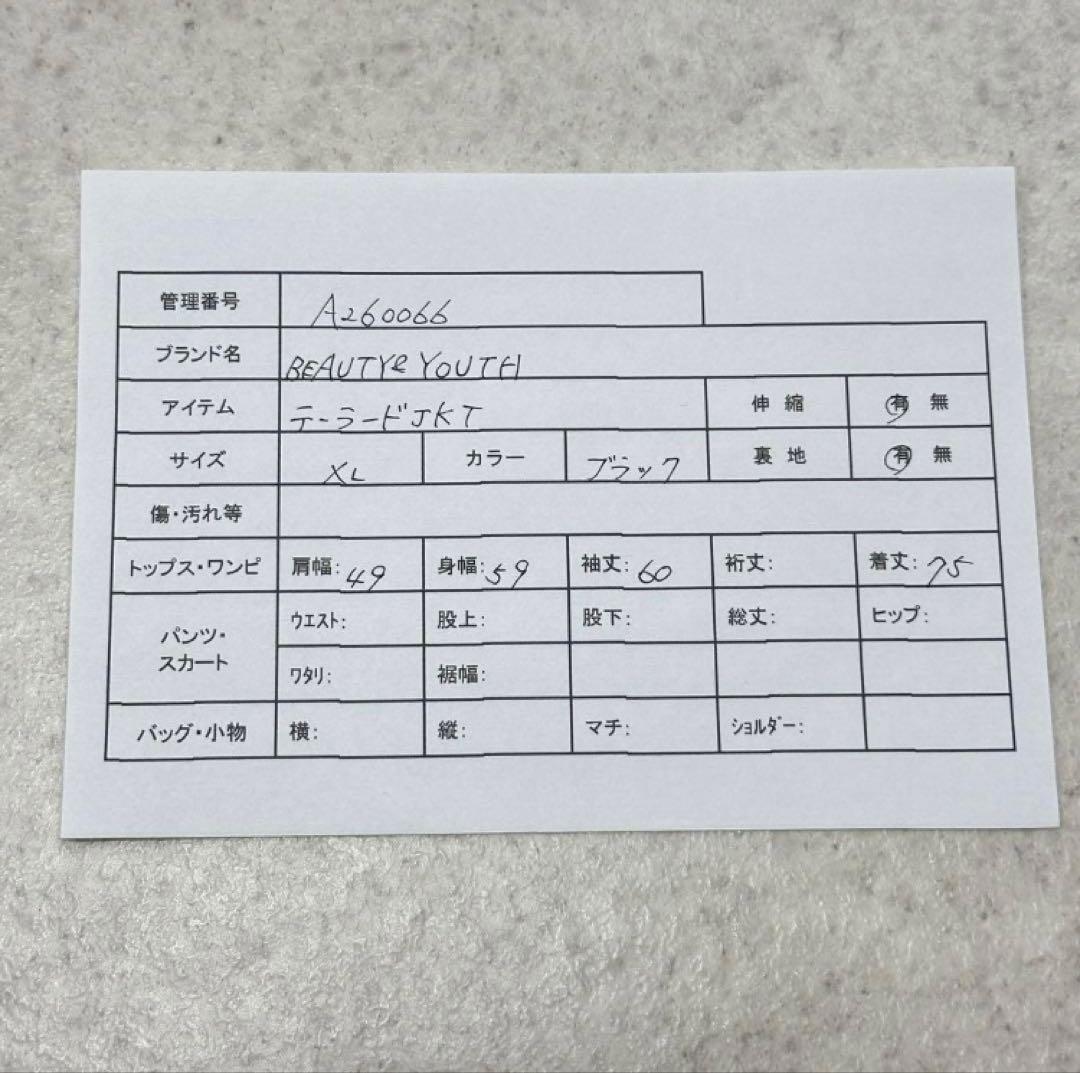 管理番号 A260066
ブランド名 BEAUTY& YOUTH
アイテム テーラードJKT 伸縮 有 無
サイズ XL カラー ブラック 裏地 有 無
傷・汚れ等
トップス・ワンピ 肩幅: 49 身幅: 59 袖丈: 60 裄丈: 着丈: 75
パンツ・
スカート
ｳｴｽﾄ: 股上: 股下: 総丈: ヒップ:
ﾜﾀﾘ: 裾幅:
バッグ・小物 横: 縦: マチ: ｼｮﾙﾀﾞｰ: